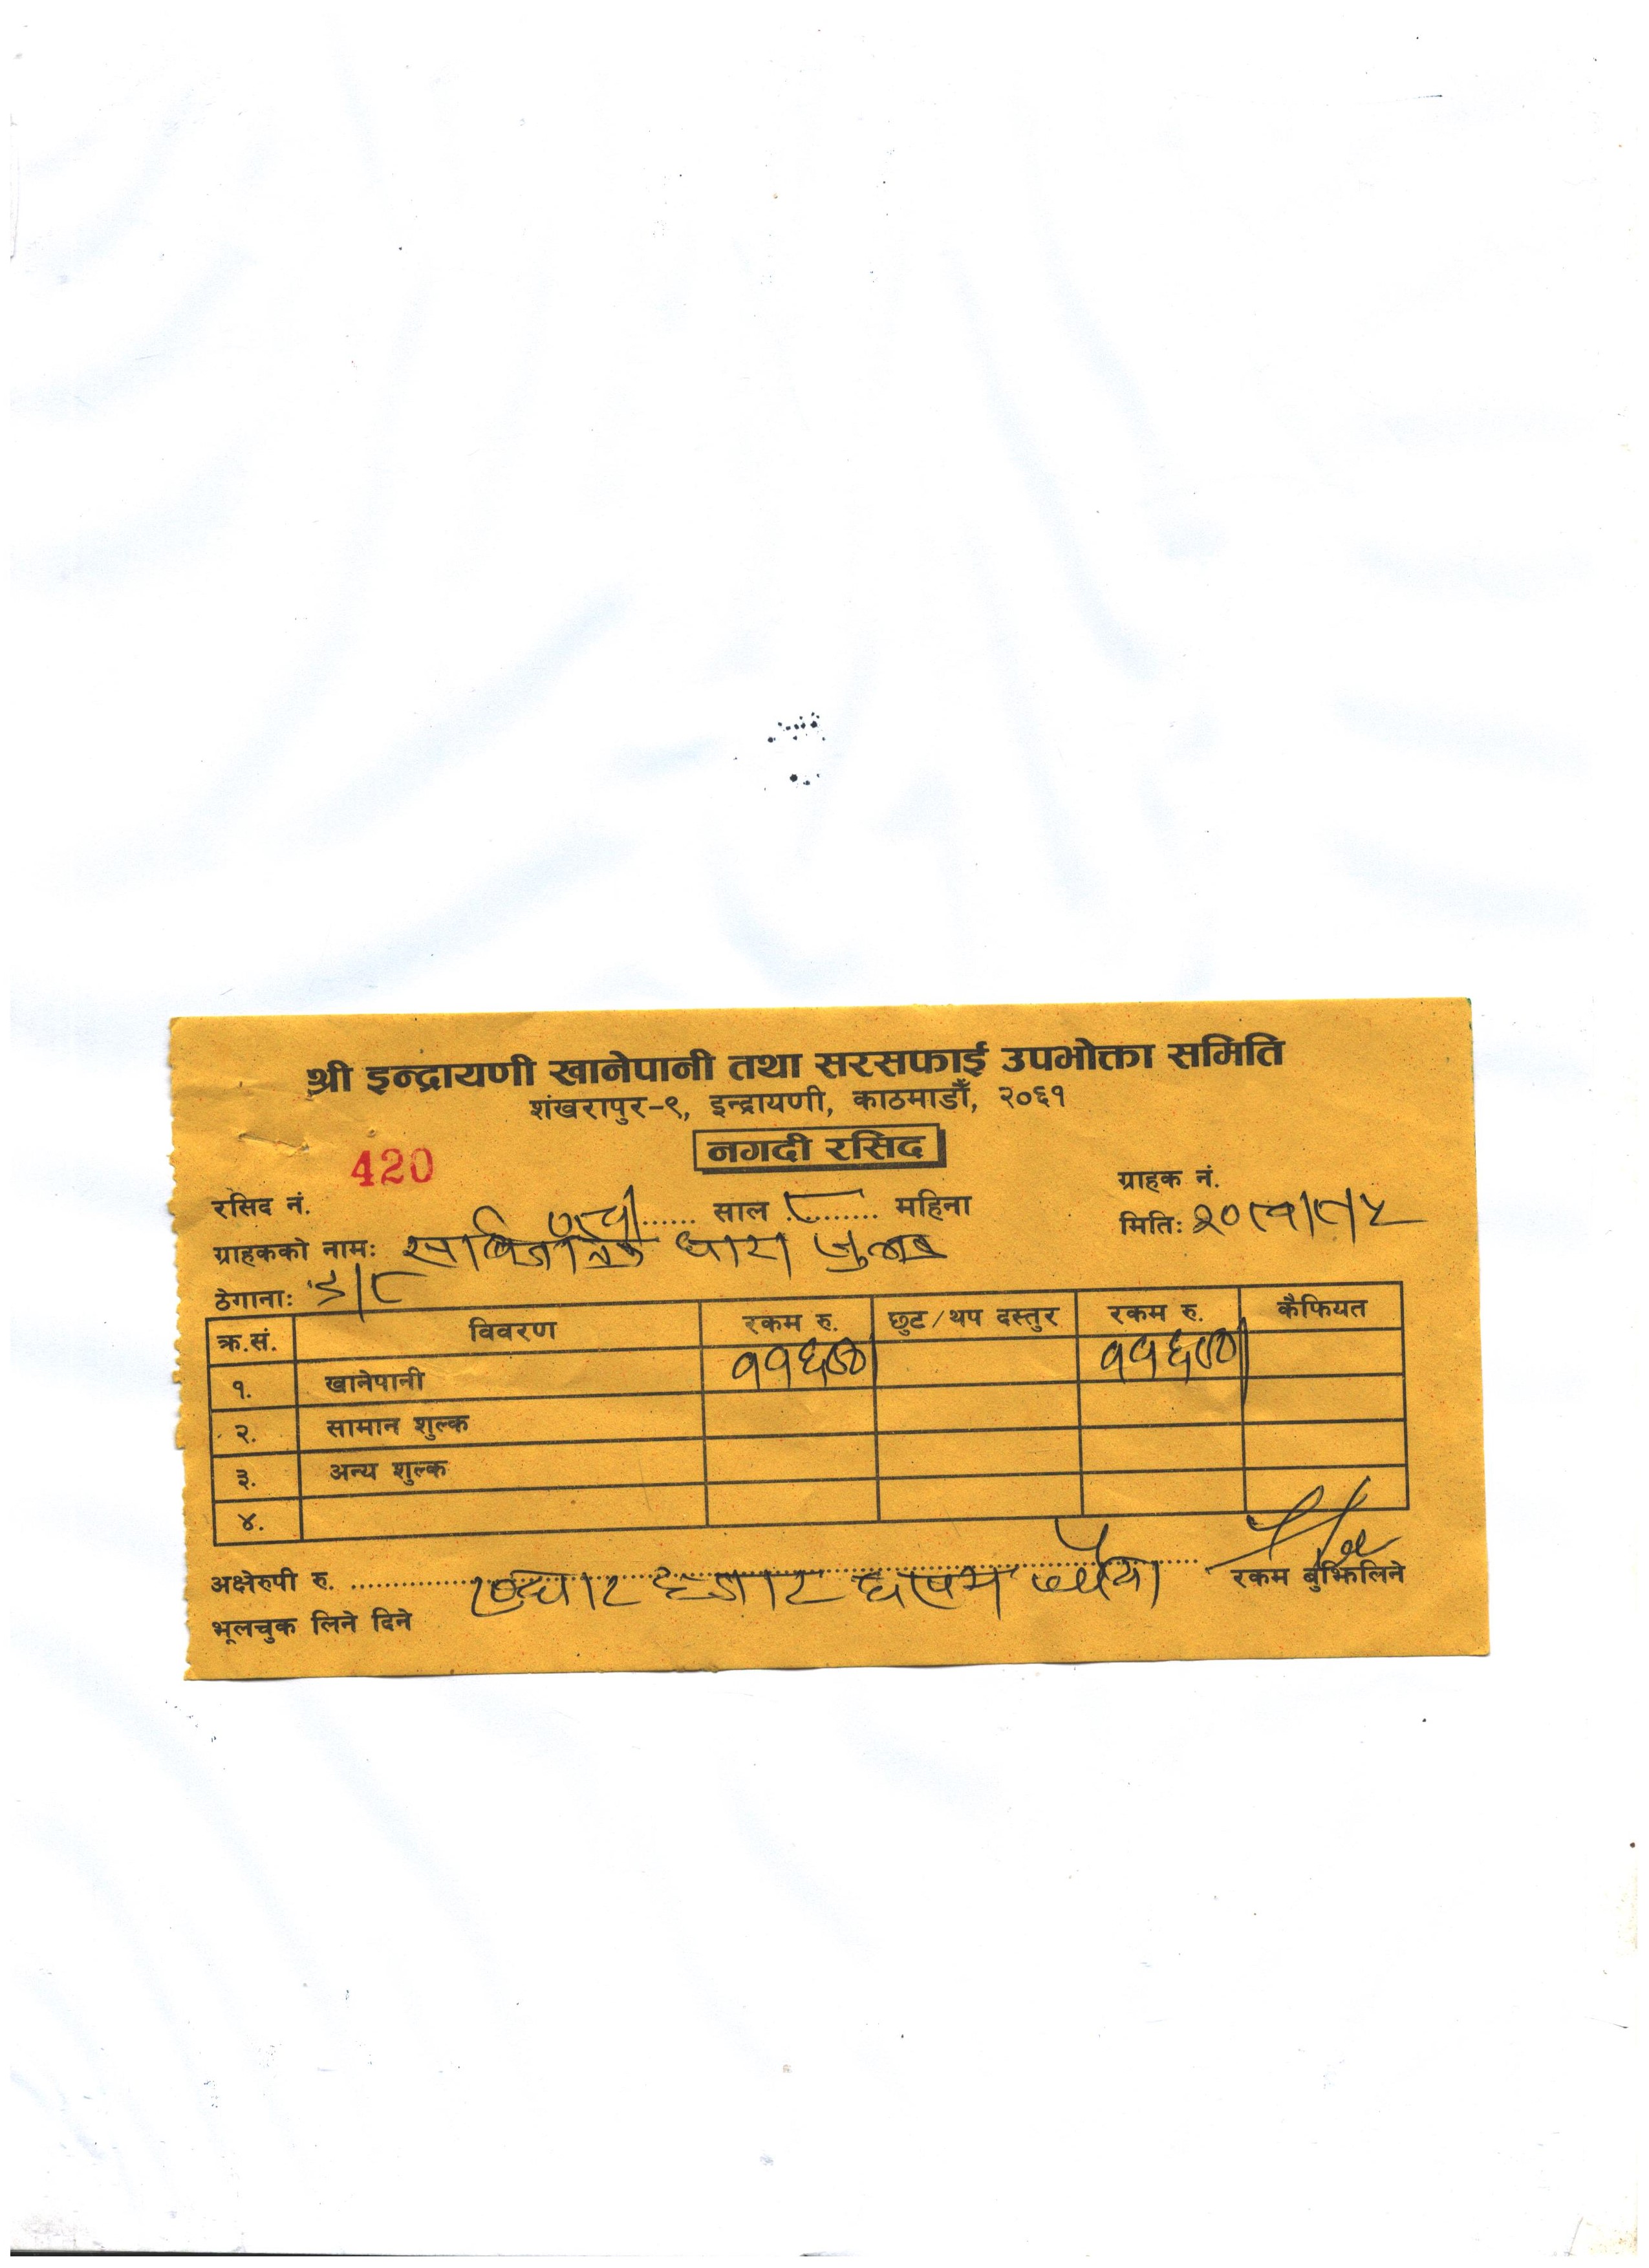 श्री इन्द्रायणी खानेपानी तथा सरसफाई उपभोक्ता समिति
शंखरापुर-९, इन्द्रायणी, काठमाडौँ, २०६१
नगदी रसिद
420
रसिद नं. साल ८ महिना
ग्राहक नं.
मिति: २०८१/८/५
ग्राहकको नाम: सार्वजनिक धारा
ठेगाना: इ/८
क्र.सं. विवरण रकम रु. छुट/थप दस्तुर रकम रु. कैफियत
१. खानेपानी ११६००/ ११६००/
२. सामान शुल्क
३. अन्य शुल्क
४.
अक्षेरुपी रु. एघार हजार छ सय रुपैया रकम बुझिलिने
भूलचुक लिने दिने